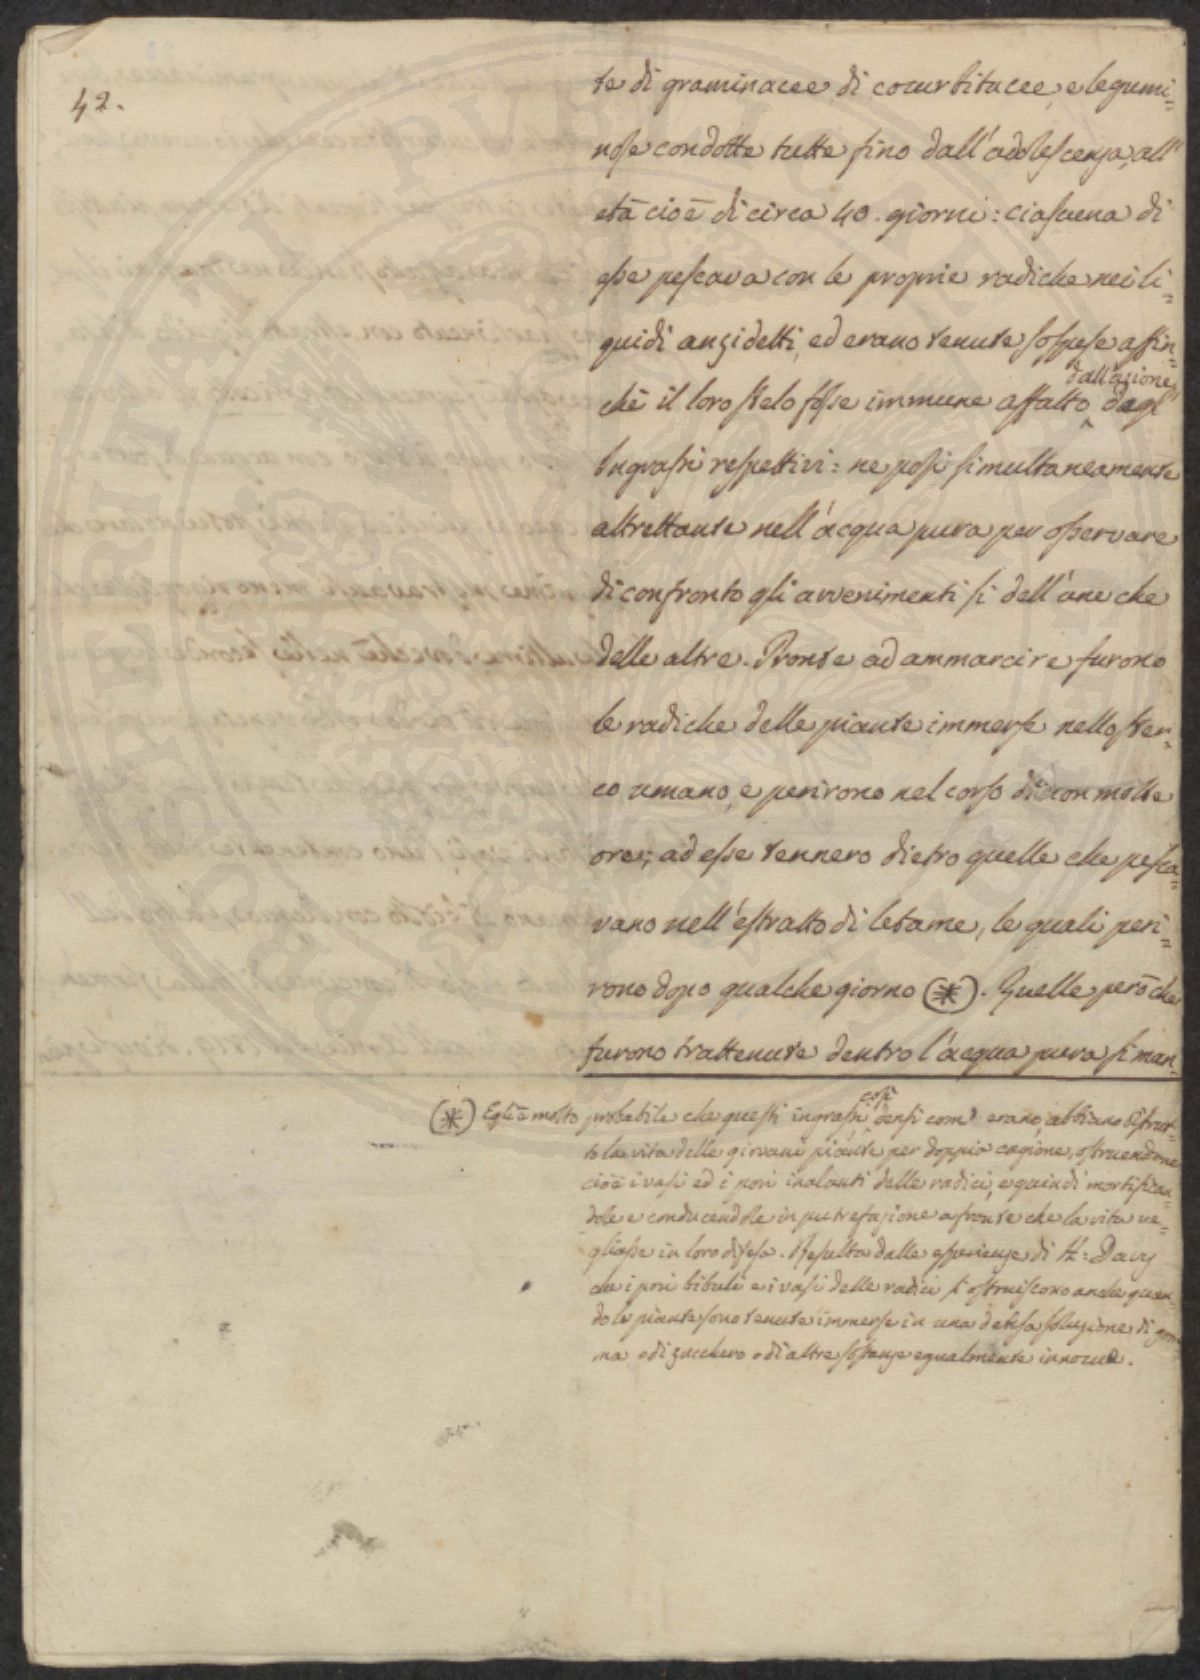 42.
te di graminacee, di cocurbitacee, e legumi=
nose condotte tutte fino dall'adolescenza, all'
età cioè di circa 40. giorni: ciascuna di
esse pescava con le proprie radiche nei li=
quidi anzidetti, ed erano tenute sospese affin=
dall'azione
chè il loro stelo fosse immune affatto dagl'
Ingrassi respettivi: ne posi simultaneamente
altrettante nell'acqua pura per osservare
di confronto gli avvenimenti sì dell'une che
delle altre. Pronte ad ammarcire furono
le radiche delle piante immerse nello ster=
co umano, e perirono nel corso di non molte
ore; ad esse tennero dietro quelle che pesca=
vano nell'estratto di letame, le quali peri=
rono dopo qualche giorno (*). Quelle però che
furono trattenute dentro l'acqua pura si man=
(*) Egli è molto probabile che questi ingrassi così densi com' erano, abbiano distrut=
to la vita delle giovani piante per doppia cagione, ostruendone
cioè i vasi ed i pori inalanti delle radici, e quindi mortifican=
dole e conducendole in putrefazione a fronte che la vita ve=
gliasse in loro difesa. Resulta dalle esperienze di H: Davy
che i pori bibuli e i vasi delle radici si ostruiscono anche quan=
do le piante sono tenute immerse in una densa soluzione di gom=
ma o di zucchero, o di altre sostanze egualmente innocue.